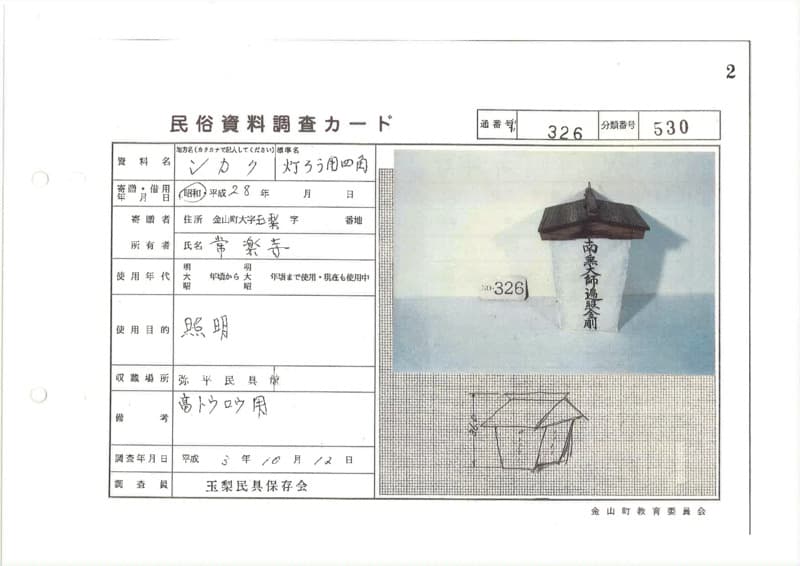 2
民俗資料調査カード
通番号 326 分類番号 530
資料名 地方名(カタカナで記入してください) シカク 標準名 灯ろう用四角
寄贈・借用年月日 昭和・平成 28 年 月 日
寄贈者 住所 金山町大字玉梨字 番地
所有者 氏名 常楽寺
使用年代 明大昭 年頃から 明大昭 年頃まで使用・現在も使用中
使用目的 照明
収蔵場所 弥平民具館
備考 高トウロウ用
調査年月日 平成 3 年 10 月 12 日
調査員 玉梨民具保存会
NO.326
南無大師遍照金剛
金山町教育委員会